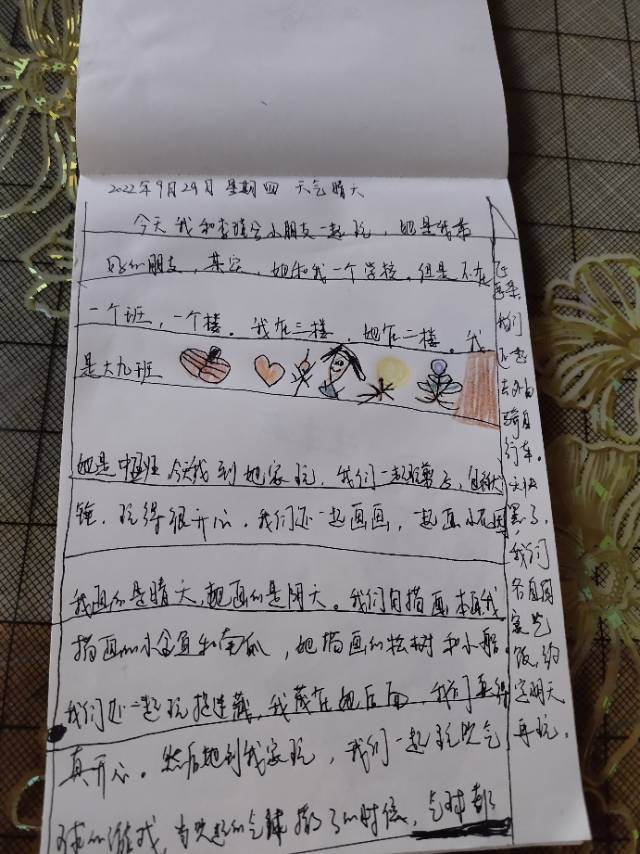 2022年9月29日 星期四 天气晴天
今天我和李晴小朋友一起玩,她是我最
好的朋友,其实,她和我一个学校,但是不在
一个班,一个楼。我在三楼,她在二楼。我
是大九班
她是中班 今天我到她家玩,我们一起玩剪子,包袱
锤,玩得很开心。我们还一起画画,一起画小花园
我画的是晴天,她画的是阴天。我们用描画本 我
描画的小金鱼和南瓜,她描画的松树和小船。
我们还一起玩捉迷藏,我藏在她后面,我们玩得
真开心。然后她到我家玩,我们一起玩吹气
球的游戏,当吹起的气球撒了的时候,气球都
飞
我们
还一起
去外面
骑自
行车。
天快
黑了,
我们
各自回
家吃
饭,约
定明天
再玩。